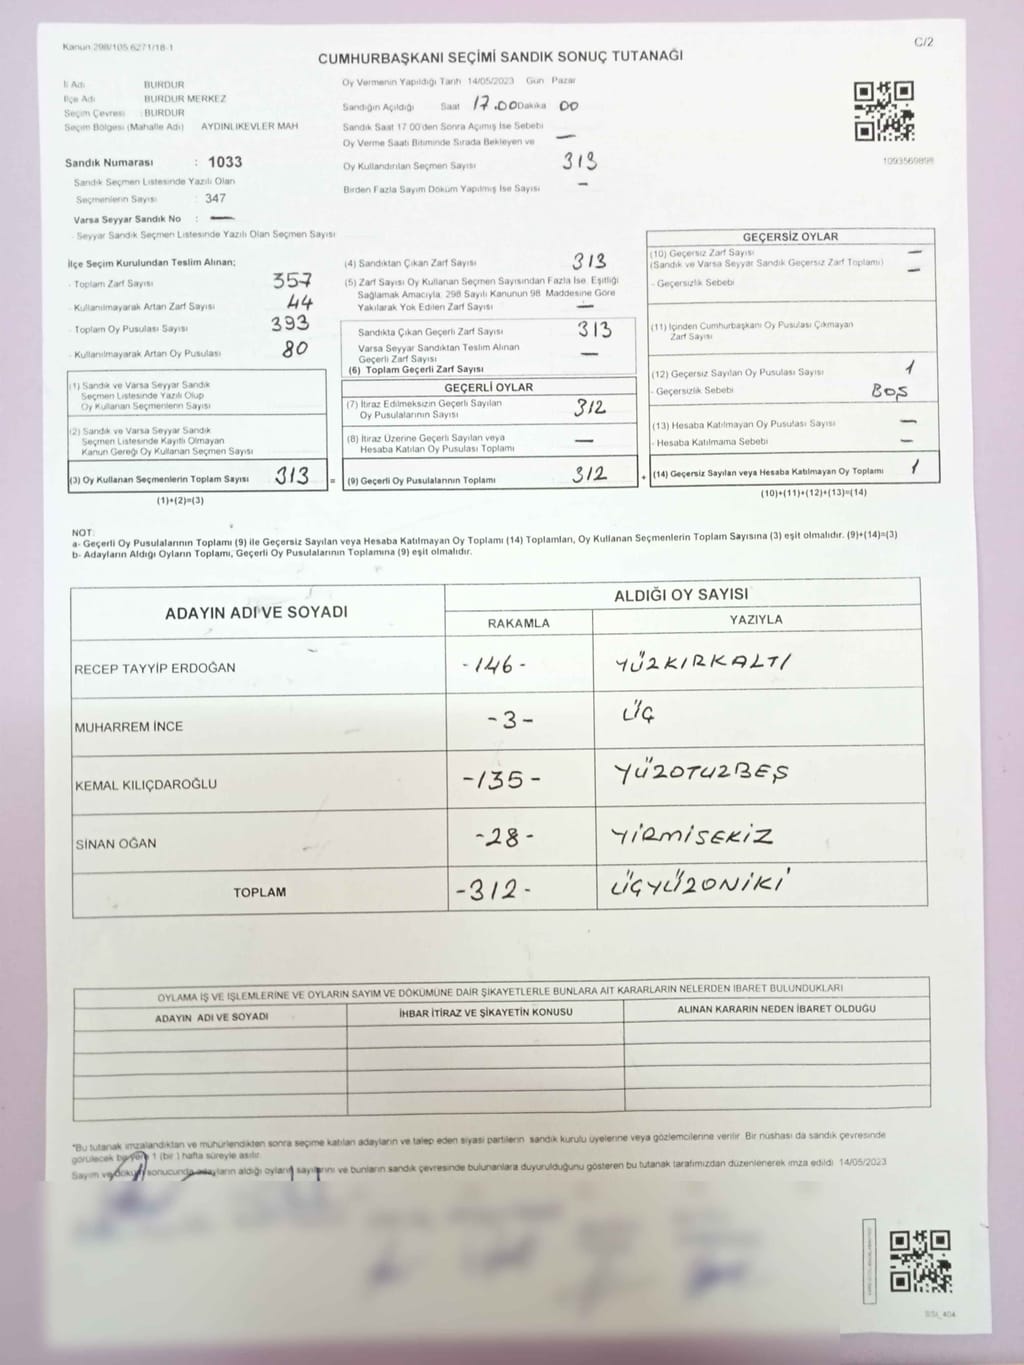 Kanun 298/105 6271/18-1
C/2
CUMHURBAŞKANI SEÇİMİ SANDIK SONUÇ TUTANAĞI
İl Adı BURDUR
İlçe Adı BURDUR MERKEZ
Seçim Çevresi : BURDUR
Seçim Bölgesi (Mahalle Adı) AYDINLIKEVLER MAH
Sandık Numarası : 1033
Sandık Seçmen Listesinde Yazılı Olan
Seçmenlerin Sayısı : 347
Varsa Seyyar Sandık No : —
- Seyyar Sandık Seçmen Listesinde Yazılı Olan Seçmen Sayısı
Oy Vermenin Yapıldığı Tarih 14/05/2023 Gün Pazar
Sandığın Açıldığı Saat 17.00 Dakika 00
Sandık Saat 17 00'den Sonra Açımış İse Sebebi
Oy Verme Saati Bitiminde Sırada Bekleyen ve —
Oy Kullandırılan Seçmen Sayısı 313
Birden Fazla Sayım Döküm Yapılmış İse Sayısı —
1093569898
İlçe Seçim Kurulundan Teslim Alınan;
- Toplam Zarf Sayısı 357
- Kullanılmayarak Artan Zarf Sayısı 44
- Toplam Oy Pusulası Sayısı 393
- Kullanılmayarak Artan Oy Pusulası 80
(1) Sandık ve Varsa Seyyar Sandık
Seçmen Listesinde Yazılı Olup
Oy Kullanan Seçmenlerin Sayısı
(2) Sandık ve Varsa Seyyar Sandık
Seçmen Listesinde Kayıtlı Olmayan
Kanun Gereği Oy Kullanan Seçmen Sayısı
(3) Oy Kullanan Seçmenlerin Toplam Sayısı 313 =
(1)+(2)=(3)
(4) Sandıktan Çıkan Zarf Sayısı 313
(5) Zarf Sayısı Oy Kullanan Seçmen Sayısından Fazla İse, Eşitliği
Sağlamak Amacıyla, 298 Sayılı Kanunun 98. Maddesine Göre
Yakılarak Yok Edilen Zarf Sayısı —
Sandıkta Çıkan Geçerli Zarf Sayısı 313
Varsa Seyyar Sandıktan Teslim Alınan
Geçerli Zarf Sayısı —
(6) Toplam Geçerli Zarf Sayısı
GEÇERLİ OYLAR
(7) İtiraz Edilmeksizin Geçerli Sayılan
Oy Pusulalarının Sayısı 312
(8) İtiraz Üzerine Geçerli Sayılan veya
Hesaba Katılan Oy Pusulası Toplamı —
(9) Geçerli Oy Pusulalarının Toplamı 312 +
GEÇERSİZ OYLAR
(10) Geçersiz Zarf Sayısı —
(Sandık ve Varsa Seyyar Sandık Geçersiz Zarf Toplamı) —
- Geçersizlik Sebebi
(11) İçinden Cumhurbaşkanı Oy Pusulası Çıkmayan
Zarf Sayısı
(12) Geçersiz Sayılan Oy Pusulası Sayısı 1
- Geçersizlik Sebebi BOŞ
(13) Hesaba Katılmayan Oy Pusulası Sayısı —
- Hesaba Katılmama Sebebi —
(14) Geçersiz Sayılan veya Hesaba Katılmayan Oy Toplamı 1
(10)+(11)+(12)+(13)=(14)
NOT:
a- Geçerli Oy Pusulalarının Toplamı (9) ile Geçersiz Sayılan veya Hesaba Katılmayan Oy Toplamı (14) Toplamları, Oy Kullanan Seçmenlerin Toplam Sayısına (3) eşit olmalıdır. (9)+(14)=(3)
b- Adayların Aldığı Oyların Toplamı, Geçerli Oy Pusulalarının Toplamına (9) eşit olmalıdır.
ADAYIN ADI VE SOYADI ALDIĞI OY SAYISI
RAKAMLA YAZIYLA
RECEP TAYYİP ERDOĞAN -146- YÜZKIRKALTI
MUHARREM İNCE -3- ÜÇ
KEMAL KILIÇDAROĞLU -135- YÜZOTUZBEŞ
SİNAN OĞAN -28- YİRMİSEKİZ
TOPLAM -312- ÜÇYÜZONİKİ
OYLAMA İŞ VE İŞLEMLERİNE VE OYLARIN SAYIM VE DÖKÜMÜNE DAİR ŞİKAYETLERLE BUNLARA AİT KARARLARIN NELERDEN İBARET BULUNDUKLARI
ADAYIN ADI VE SOYADI İHBAR İTİRAZ VE ŞİKAYETİN KONUSU ALINAN KARARIN NEDEN İBARET OLDUĞU
*Bu tutanak imzalandıktan ve mühürlendikten sonra seçime katılan adayların ve talep eden siyasi partilerin sandık kurulu üyelerine veya gözlemcilerine verilir. Bir nüshası da sandık çevresinde
görülecek bir yere 1 (bir ) hafta süreyle asılır.
Sayım ve döküm sonucunda adayların aldığı oyların sayılarını ve bunların sandık çevresinde bulunanlara duyurulduğunu gösteren bu tutanak tarafımızdan düzenlenerek imza edildi 14/05/2023
SSI_404